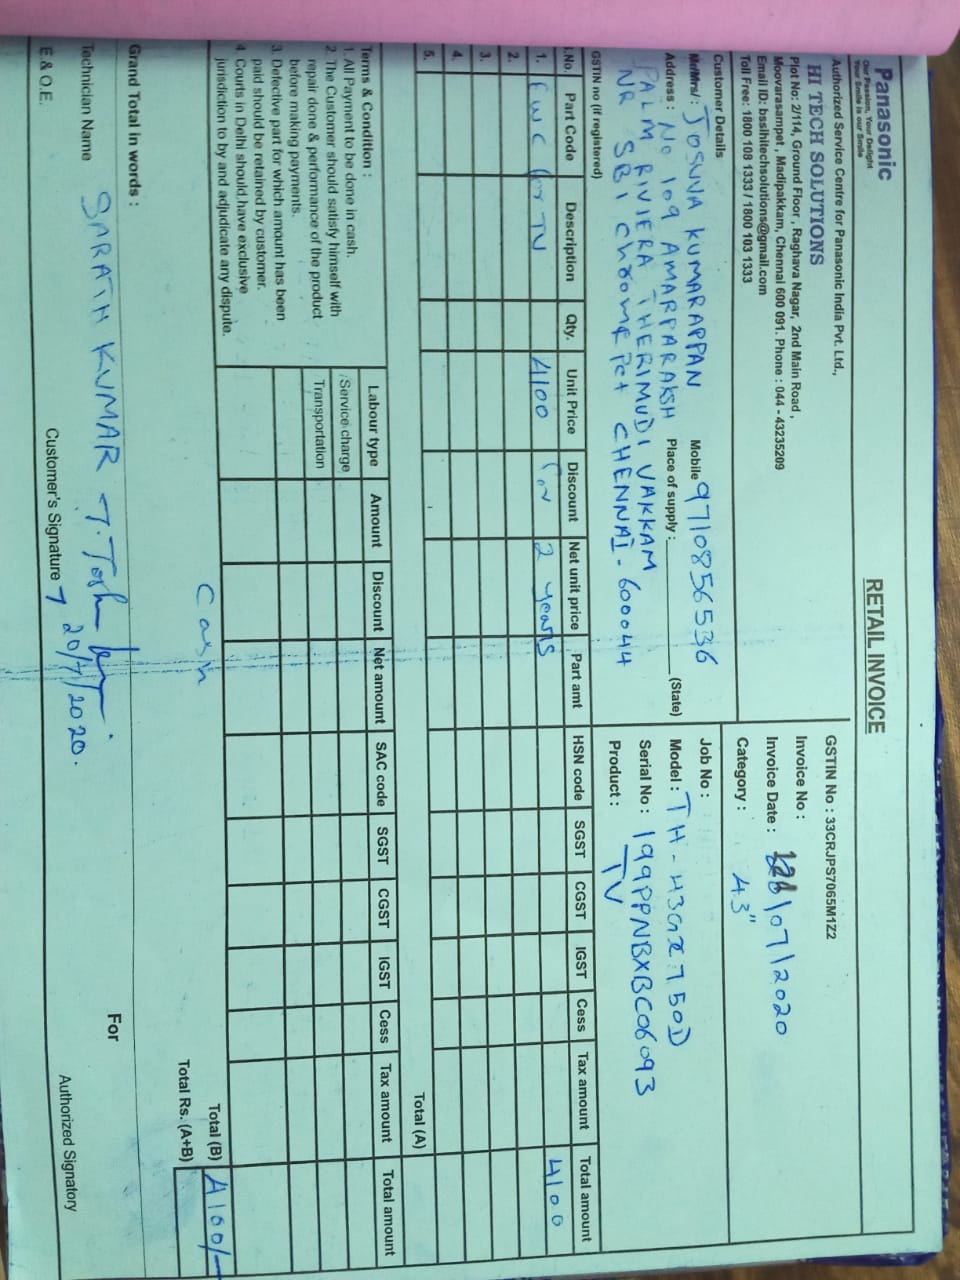 Panasonic
Our Passion, Your Delight
Your Smile is our Smile
RETAIL INVOICE
Authorized Service Centre for Panasonic India Pvt. Ltd.,
HI TECH SOLUTIONS
Plot No: 2/114, Ground Floor, Raghava Nagar, 2nd Main Road,
Moovarasampet, Madipakkam, Chennai 600 091. Phone : 044 - 43235209
Email ID: bssihitechsolutions@gmail.com
Toll Free: 1800 108 1333 / 1800 103 1333
GSTIN No : 33CRJPS7065M1Z2
Invoice No :
Invoice Date : /07/2020
Category : 43"
Customer Details
Mr/Mrs/ : JOSUVA KUMARAPPAN Mobile 9710856536
Address : No 109 AMARPARAKSH Place of supply : (State)
PALM RIVIERA THERIMUDI VAKKAM
NR SBI Chromepet CHENNAI - 600044
GSTIN no (if registered)
Job No :
Model : TH-43GX750D
Serial No : 199PPNBXBC06093
Product : TV
No. Part Code Description Qty. Unit Price Discount Net unit price Part amt HSN code SGST CGST IGST Cess Tax amount Total amount
1. EWC for TV 4100 for 2 years 4100
2.
3.
4.
5.
Total (A)
Terms & Condition :
1. All Payment to be done in cash.
2. The Customer should satisfy himself with
repair done & performance of the product
before making payments.
3. Defective part for which amount has been
paid should be retained by customer.
4. Courts in Delhi should have exclusive
jurisdiction to by and adjudicate any dispute.
Labour type Amount Discount Net amount SAC code SGST CGST IGST Cess Tax amount Total amount
Service charge
Transportation
Total (B) 4100/-
Cash
Total Rs. (A+B)
Grand Total in words :
For
Technician Name SARATH KUMAR
20/7/2020.
E & O.E. Customer's Signature Authorized Signatory